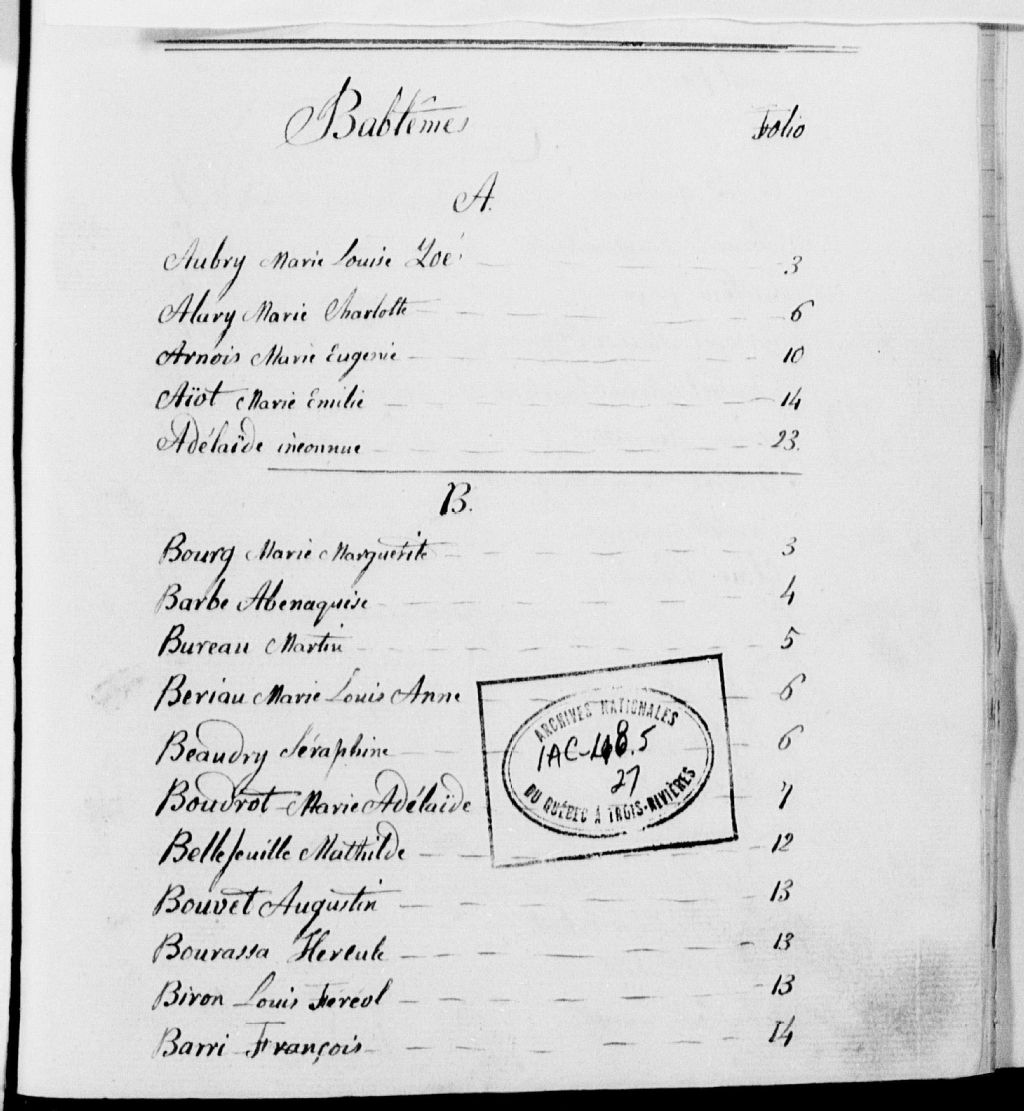 Babtêmes Folio
A.
Aubry Marie Louise Zoé 3
Alary Marie Charlotte 6
Arnois Marie Eugenie 10
Aïot Marie Emilie 14
Adélaïde inconnue 23.
B.
Bourg Marie Marguerite 3
Barbe Abenaquise 4
Bureau Martin 5
Beriau Marie Louis Anne 6
Beaudry Séraphine 6
Boudrot Marie Adélaïde 7
Bellefeuille Mathilde 12
Bouvet Augustin 13
Bourassa Hercule 13
Biron Louis Feréol 13
Barri François 14
ARCHIVES NATIONALES
27
DU QUÉBEC À TROIS-RIVIÈRES